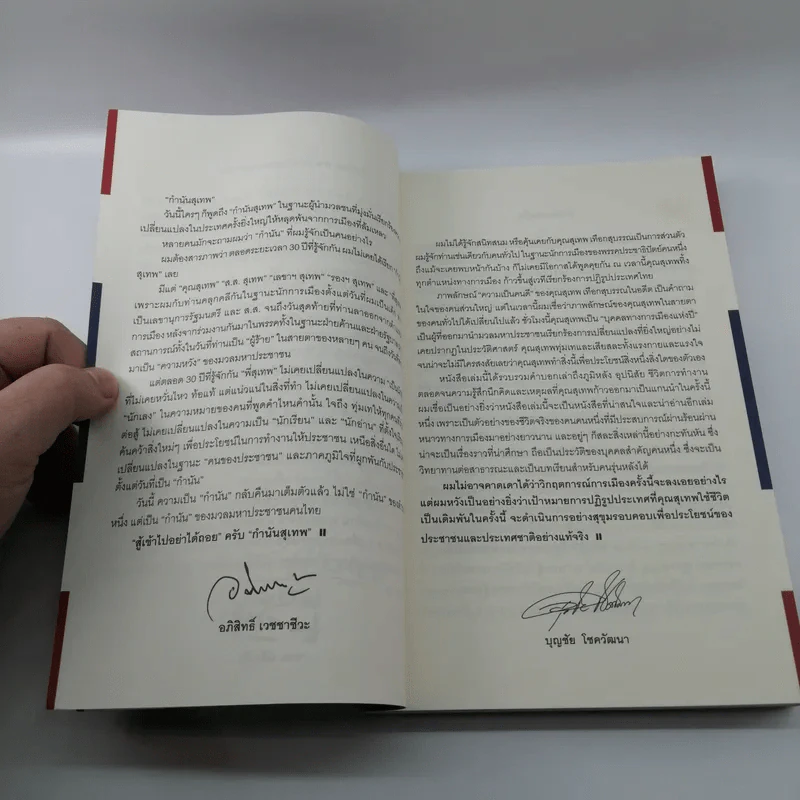 "กำนันสุเทพ"
วันนี้ใครๆ ก็พูดถึง "กำนันสุเทพ" ในฐานะผู้นำมวลชนที่มุ่งมั่น
เปลี่ยนแปลงในประเทศครั้งยิ่งใหญ่ให้หลุดพ้นจากการเมืองที่ล้มเหลว
หลายคนมักจะถามผมว่า "กำนัน" ที่ผมรู้จักเป็นคนอย่างไร
ผมต้องสารภาพว่า ตลอดระยะเวลา 30 ปีที่รู้จักกัน ผมไม่เคยได้เรียก
สุเทพ" เลย
มีแต่ "คุณสุเทพ" "ส.ส. สุเทพ" "เลขาฯ สุเทพ" "รองฯ สุเทพ" และ
เพราะผมกับท่านคลุกคลีกันในฐานะนักการเมืองตั้งแต่วันที่ผมเป็น
เป็นเลขานุการรัฐมนตรี และ ส.ส. จนถึงวันสุดท้ายที่ท่านลาออกจาก
การเมือง หลังจากร่วมงานกันมาในพรรคทั้งในฐานะฝ่ายค้านและฝ่ายรัฐบาล
สถานการณ์ทั้งในวันที่ท่านเป็น "ผู้ร้าย" ในสายตาของหลายๆ คน จนถึงวันที่
มาเป็น "ความหวัง" ของมวลมหาประชาชน
แต่ตลอด 30 ปีที่รู้จักกัน "พี่สุเทพ" ไม่เคยเปลี่ยนแปลงในความ
ที่ไม่เคยหวั่นไหว ท้อแท้ แต่แน่วแน่ในสิ่งที่ทำ ไม่เคยเปลี่ยนแปลงในความ
"นักเลง" ในความหมายของคนที่พูดคำไหนคำนั้น ใจถึง ทุ่มเทให้ทุกคน
ต่อสู้ ไม่เคยเปลี่ยนแปลงในความเป็น "นักเรียน" และ "นักอ่าน" ที่ตั้งใจ
ค้นคว้าสิ่งใหม่ๆ เพื่อประโยชน์ในการทำงานให้ประชาชน เหนือสิ่งอื่นใด ไม่
เปลี่ยนแปลงในฐานะ "คนของประชาชน" และภาคภูมิใจที่ผูกพันกับประชาชน
ตั้งแต่วันที่เป็น "กำนัน"
วันนี้ ความเป็น "กำนัน" กลับคืนมาเต็มตัวแล้ว ไม่ใช่ "กำนัน" ของ
หนึ่ง แต่เป็น "กำนัน" ของมวลมหาประชาชนคนไทย
"สู้เข้าไปอย่าได้ถอย" ครับ "กำนันสุเทพ"
อภิสิทธิ์ เวชชาชีวะ
ผมไม่ได้รู้จักสนิทสนม หรือคุ้นเคยกับคุณสุเทพ เทือกสุบรรณเป็นการส่วนตัว
ผมรู้จักท่านเช่นเดียวกับคนทั่วไป ในฐานะนักการเมืองของพรรคประชาธิปัตย์คนหนึ่ง
ถึงแม้จะเคยพบหน้ากันบ้าง ก็ไม่เคยมีโอกาสได้พูดคุยกัน ณ เวลานี้คุณสุเทพทิ้ง
ทุกตำแหน่งทางการเมือง ก้าวขึ้นสู่เวทีเรียกร้องการปฏิรูปประเทศไทย
ภาพลักษณ์ "ความเป็นคนดี" ของคุณสุเทพ เทือกสุบรรณในอดีต เป็นคำถาม
ในใจของคนส่วนใหญ่ แต่ในเวลานี้ผมเชื่อว่าภาพลักษณ์ของคุณสุเทพในสายตา
ของคนทั่วไปได้เปลี่ยนไปแล้ว ชั่วโมงนี้คุณสุเทพเป็น "บุคคลทางการเมืองแห่งปี"
เป็นผู้ที่ออกมานำมวลมหาประชาชนเรียกร้องการเปลี่ยนแปลงที่ยิ่งใหญ่อย่างไม่
เคยปรากฏในประวัติศาสตร์ คุณสุเทพทุ่มเทและเสียสละทั้งแรงกายและแรงใจ
จนน่าจะไม่มีใครสงสัยเลยว่าคุณสุเทพทำสิ่งนี้เพื่อประโยชน์สิ่งหนึ่งสิ่งใดของตัวเอง
หนังสือเล่มนี้ได้รวบรวมคำบอกเล่าถึงภูมิหลัง อุปนิสัย ชีวิตการทำงาน
ตลอดจนความรู้สึกนึกคิดและเหตุผลที่คุณสุเทพก้าวออกมาเป็นแกนนำในครั้งนี้
ผมเชื่อเป็นอย่างยิ่งว่าหนังสือเล่มนี้จะเป็นหนังสือที่น่าสนใจและน่าอ่านอีกเล่ม
หนึ่ง เพราะเป็นตัวอย่างของชีวิตจริงของคนคนหนึ่งที่มีประสบการณ์ผ่านร้อนผ่าน
หนาวทางการเมืองมาอย่างยาวนาน และอยู่ๆ ก็สละสิ่งเหล่านี้อย่างกะทันหัน ซึ่ง
น่าจะเป็นเรื่องราวที่น่าศึกษา ถือเป็นประวัติของบุคคลสำคัญคนหนึ่ง ซึ่งจะเป็น
วิทยาทานต่อสาธารณะและเป็นบทเรียนสำหรับคนรุ่นหลังได้
ผมไม่อาจคาดเดาได้ว่าวิกฤตการณ์การเมืองครั้งนี้จะลงเอยอย่างไร
แต่ผมหวังเป็นอย่างยิ่งว่าเป้าหมายการปฏิรูปประเทศที่คุณสุเทพใช้ชีวิต
เป็นเดิมพันในครั้งนี้ จะดำเนินการอย่างสุขุมรอบคอบเพื่อประโยชน์ของ
ประชาชนและประเทศชาติอย่างแท้จริง
บุญชัย โชควัฒนา